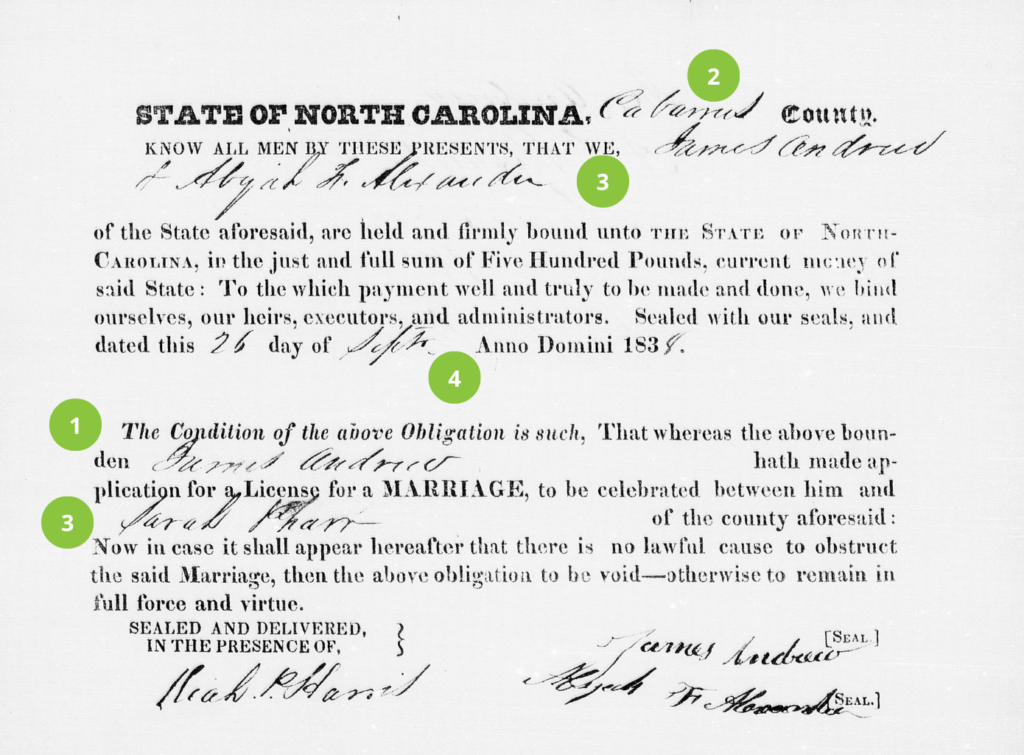 2
STATE OF NORTH CAROLINA, Cabarrus County.
KNOW ALL MEN BY THESE PRESENTS, THAT WE, James Andrew
& Abijah F. Alexander 3
of the State aforesaid, are held and firmly bound unto THE STATE OF NORTH-
CAROLINA, in the just and full sum of Five Hundred Pounds, current money of
said State: To the which payment well and truly to be made and done, we bind
ourselves, our heirs, executors, and administrators. Sealed with our seals, and
dated this 26 day of Septr. Anno Domini 1838.
4
1 The Condition of the above Obligation is such, That whereas the above boun-
den James Andrew hath made ap-
plication for a License for a MARRIAGE, to be celebrated between him and
3 Sarah Pharr of the county aforesaid:
Now in case it shall appear hereafter that there is no lawful cause to obstruct
the said Marriage, then the above obligation to be void—otherwise to remain in
full force and virtue.
SEALED AND DELIVERED,
IN THE PRESENCE OF,
James Andrew [SEAL.]
P. Harris
Abijah F. Alexander [SEAL.]